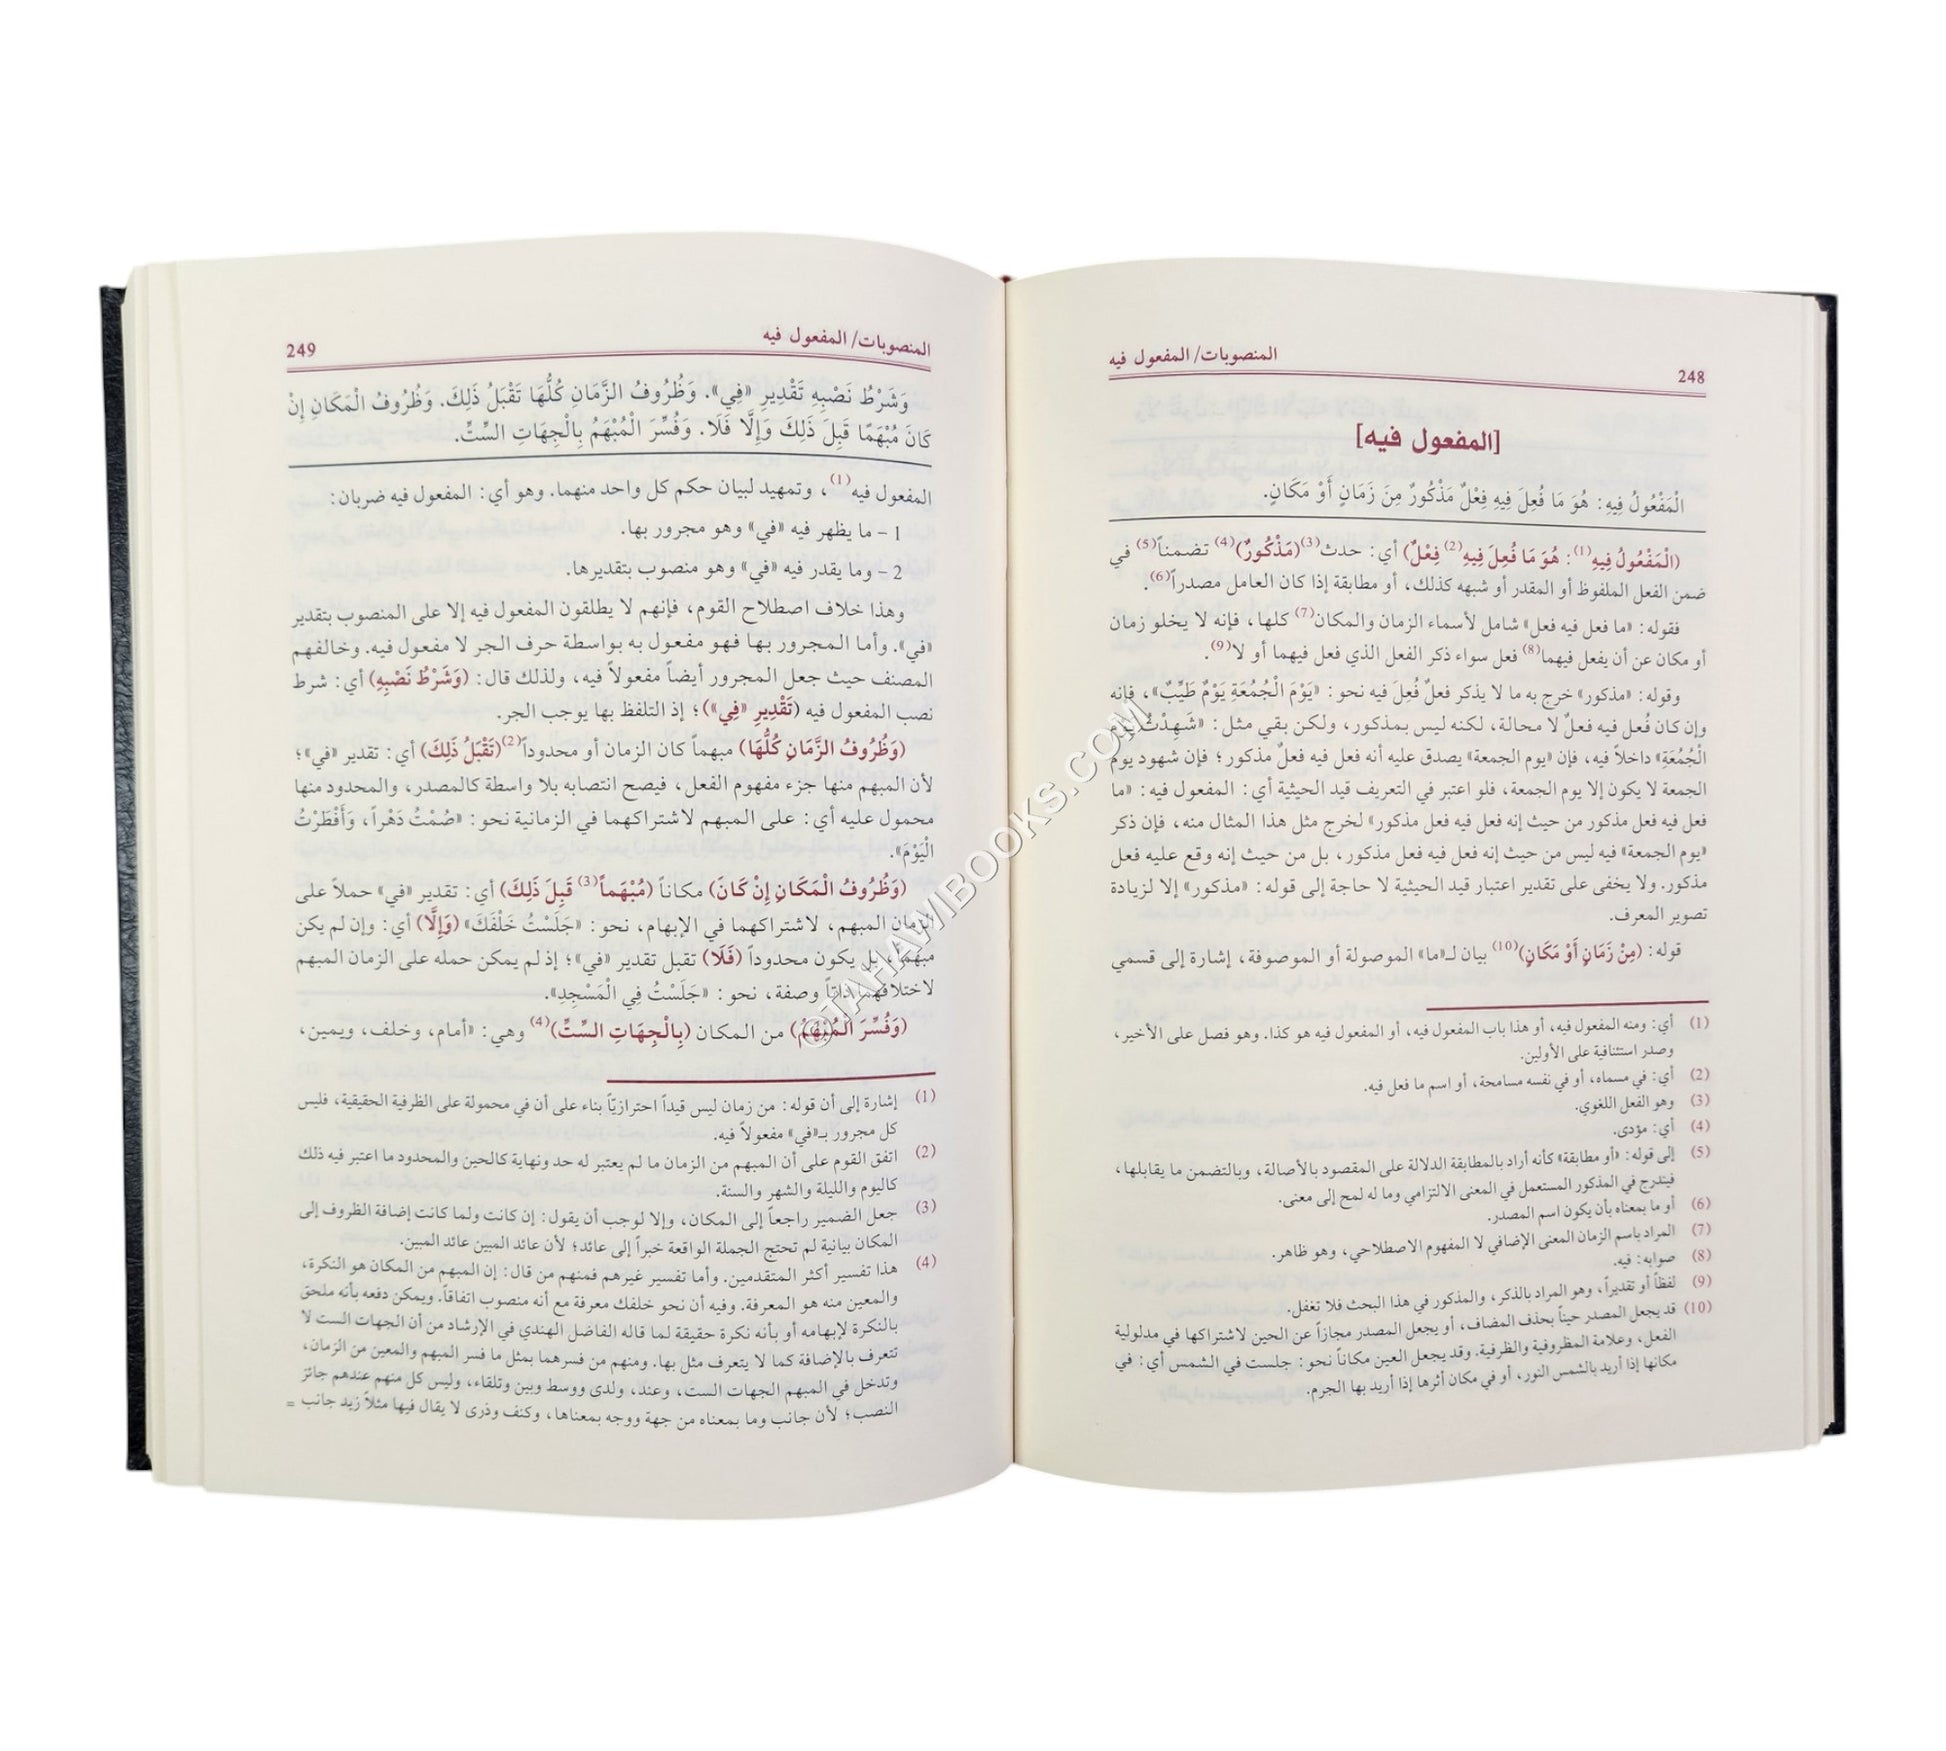 المنصوبات/ المفعول فيه
248
[المفعول فيه]
الْمَفْعُولُ فِيهِ: هُوَ مَا فُعِلَ فِيهِ فِعْلٌ مَذْكُورٌ مِنَ زَمَانٍ أَوْ مَكَانٍ.
(الْمَفْعُولُ فِيهِ(1): هُوَ مَا فُعِلَ فِيهِ(2) فِعْلٌ) أي: حدث(3)(مَذْكُورٌ)(4) تضمناً(5) في
ضمن الفعل الملفوظ أو المقدر أو شبهه كذلك، أو مطابقة إذا كان العامل مصدراً(6).
فقوله: «ما فعل فيه فعل» شامل لأسماء الزمان والمكان(7) كلها، فإنه لا يخلو زمان
أو مكان عن أن يفعل فيهما(8) فعل سواء ذكر الفعل الذي فعل فيهما أو لا(9).
وقوله: «مذكور» خرج به ما لا يذكر فعلٌ فُعِلَ فيه نحو: «يَوْمَ الْجُمُعَةِ يَوْمٌ طَيِّبٌ»، فإنه
وإن كان فُعل فيه فعلٌ لا محالة، لكنه ليس بمذكور، ولكن بقي مثل: «شَهِدْتُ يَوْمَ
الْجُمُعَةِ» داخلاً فيه، فإن «يوم الجمعة» يصدق عليه أنه فعل فيه فعلٌ مذكور؛ فإن شهود يوم
الجمعة لا يكون إلا يوم الجمعة، فلو اعتبر في التعريف قيد الحيثية أي: المفعول فيه: «ما
فعل فيه فعل مذكور من حيث إنه فعل فيه فعل مذكور» لخرج مثل هذا المثال منه، فإن ذكر
«يوم الجمعة» فيه ليس من حيث إنه فعل فيه فعل مذكور، بل من حيث إنه وقع عليه فعل
مذكور. ولا يخفى على تقدير اعتبار قيد الحيثية لا حاجة إلى قوله: «مذكور» إلا لزيادة
تصوير المعرف.
قوله: (مِنْ زَمَانٍ أَوْ مَكَانٍ)(10) بيان لـ«ما» الموصولة أو الموصوفة، إشارة إلى قسمي
(1) أي: ومنه المفعول فيه، أو هذا باب المفعول فيه، أو المفعول فيه هو كذا. وهو فصل على الأخير،
وصدر استئنافية على الأولين.
(2) أي: في مسماه، أو في نفسه مسامحة، أو اسم ما فعل فيه.
(3) وهو الفعل اللغوي.
(4) أي: مؤدى.
(5) إلى قوله: «أو مطابقة» كأنه أراد بالمطابقة الدلالة على المقصود بالأصالة، وبالتضمن ما يقابلها،
فيندرج في المذكور المستعمل في المعنى الالتزامي وما له لمح إلى معنى.
(6) أو ما بمعناه بأن يكون اسم المصدر.
(7) المراد باسم الزمان المعنى الإضافي لا المفهوم الاصطلاحي، وهو ظاهر.
(8) صوابه: فيه.
(9) لفظاً أو تقديراً، وهو المراد بالذكر، والمذكور في هذا البحث فلا تغفل.
(10) قد يجعل المصدر حيناً بحذف المضاف، أو يجعل المصدر مجازاً عن الحين لاشتراكها في مدلولية
الفعل، وعلامة المظروفية والظرفية. وقد يجعل العين مكاناً نحو: جلست في الشمس أي: في
مكانها إذا أريد بالشمس النور، أو في مكان أثرها إذا أريد بها الجرم.
المنصوبات/ المفعول فيه
249
وَشَرْطُ نَصْبِهِ تَقْدِيرِ «فِي». وَظُرُوفُ الزَّمَانِ كُلُّهَا تَقْبَلُ ذَلِكَ. وَظُرُوفُ الْمَكَانِ إِنْ
كَانَ مُبْهَمًا قَبِلَ ذَلِكَ وَإِلَّا فَلَا. وَفُسِّرَ الْمُبْهَمُ بِالْجِهَاتِ السِّتِّ.
المفعول فيه(1)، وتمهيد لبيان حكم كل واحد منهما. وهو أي: المفعول فيه ضربان:
1 - ما يظهر فيه «في» وهو مجرور بها.
2 - وما يقدر فيه «في» وهو منصوب بتقديرها.
وهذا خلاف اصطلاح القوم، فإنهم لا يطلقون المفعول فيه إلا على المنصوب بتقدير
«في». وأما المجرور بها فهو مفعول به بواسطة حرف الجر لا مفعول فيه. وخالفهم
المصنف حيث جعل المجرور أيضاً مفعولاً فيه، ولذلك قال: (وَشَرْطُ نَصْبِهِ) أي: شرط
نصب المفعول فيه (تَقْدِيرِ «فِي»)؛ إذ التلفظ بها يوجب الجر.
(وَظُرُوفُ الزَّمَانِ كُلُّهَا) مبهماً كان الزمان أو محدوداً(2)(تَقْبَلُ ذَلِكَ) أي: تقدير «في»؛
لأن المبهم منها جزء مفهوم الفعل، فيصح انتصابه بلا واسطة كالمصدر، والمحدود منها
محمول عليه أي: على المبهم لاشتراكهما في الزمانية نحو: «صُمْتُ دَهْراً، وَأَفْطَرْتُ
الْيَوْمَ».
(وَظُرُوفُ الْمَكَانِ إِنْ كَانَ) مكاناً (مُبْهَماً(3) قَبِلَ ذَلِكَ) أي: تقدير «في» حملاً على
الزمان المبهم، لاشتراكهما في الإبهام، نحو: «جَلَسْتُ خَلْفَكَ» (وَإِلَّا) أي: وإن لم يكن
مبهماً، بل يكون محدوداً (فَلَا) تقبل تقدير «في»؛ إذ لم يمكن حمله على الزمان المبهم
لاختلافهما ذاتاً وصفة، نحو: «جَلَسْتُ فِي الْمَسْجِدِ».
(وَفُسِّرَ الْمُبْهَمُ) من المكان (بِالْجِهَاتِ السِّتِّ)(4) وهي: «أمام، وخلف، ويمين،
(1) إشارة إلى أن قوله: من زمان ليس قيداً احترازيّاً بناء على أن في محمولة على الظرفية الحقيقية، فليس
كل مجرور بـ«في» مفعولاً فيه.
(2) اتفق القوم على أن المبهم من الزمان ما لم يعتبر له حد ونهاية كالحين والمحدود ما اعتبر فيه ذلك
كاليوم والليلة والشهر والسنة.
(3) جعل الضمير راجعاً إلى المكان، وإلا لوجب أن يقول: إن كانت ولما كانت إضافة الظروف إلى
المكان بيانية لم تحتج الجملة الواقعة خبراً إلى عائد؛ لأن عائد المبين عائد المبين.
(4) هذا تفسير أكثر المتقدمين. وأما تفسير غيرهم فمنهم من قال: إن المبهم من المكان هو النكرة،
والمعين منه هو المعرفة. وفيه أن نحو خلفك معرفة مع أنه منصوب اتفاقاً. ويمكن دفعه بأنه ملحق
بالنكرة لإبهامه أو بأنه نكرة حقيقة لما قاله الفاضل الهندي في الإرشاد من أن الجهات الست لا
تتعرف بالإضافة كما لا يتعرف مثل بها. ومنهم من فسرهما بمثل ما فسر المبهم والمعين من الزمان،
وتدخل في المبهم الجهات الست، وعند، ولدى ووسط وبين وتلقاء، وليس كل منهم عندهم جائز
النصب؛ لأن جانب وما بمعناه من جهة ووجه بمعناها، وكنف وذرى لا يقال فيها مثلاً زيد جانب =
©TAHAWIBOOKS.COM